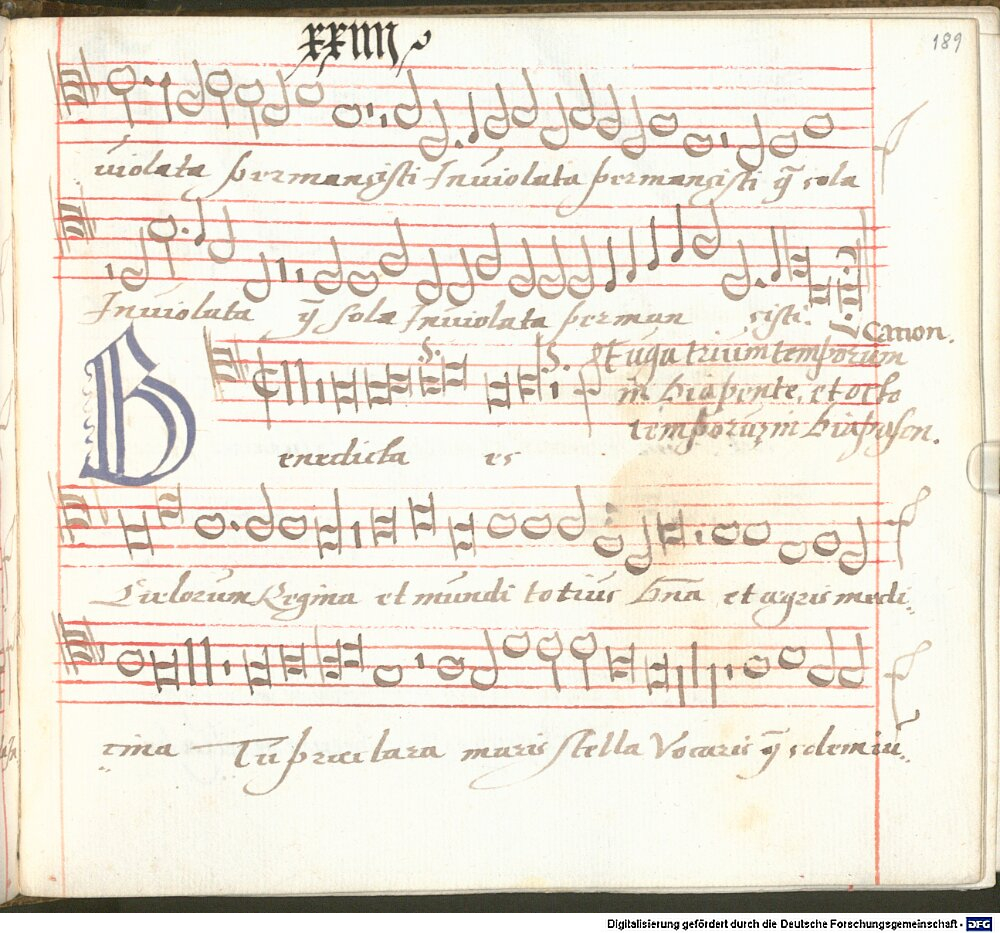 xxiiii
189
uiolata permansisti Inuiolata permansisti q̃ sola
Inuiolata q̃ sola Inuiolata perman sisti.
Canon.
Fuga trium temporum
in Diapente, et octo
temporum in Diapason.
Benedicta es
Cælorum Regina et mundi totius Dña et ægris medi
cina Tu præclara maris stella Vocaris q̃ solemiu
Digitalisierung gefördert durch die Deutsche Forschungsgemeinschaft - DFG